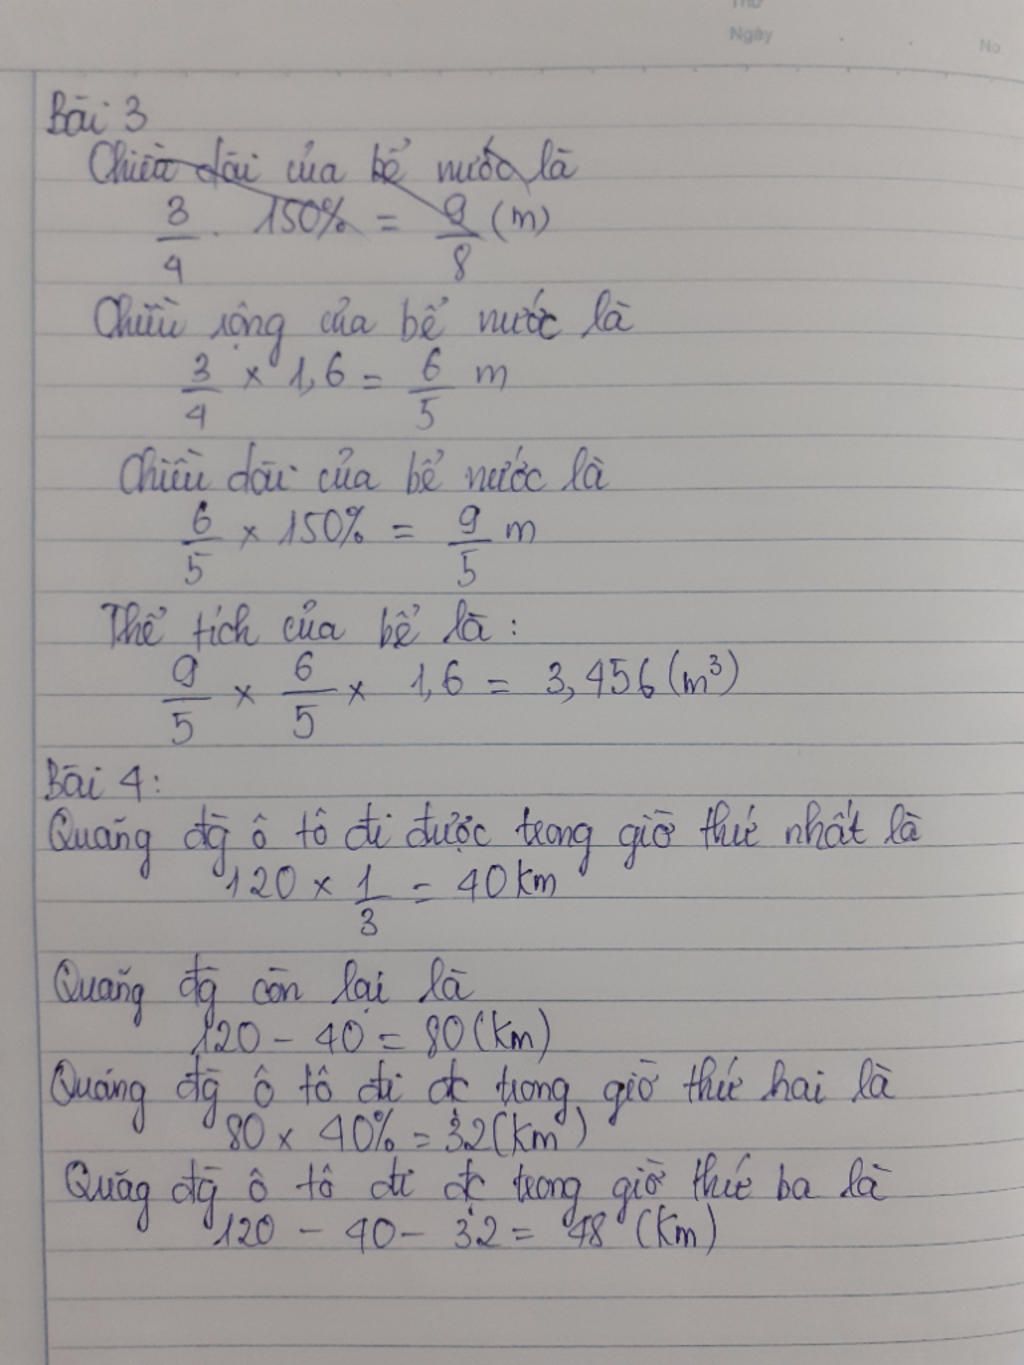 Thứ
Ngày
No.
Bài 3
Chiều dài của bể nước là
3/4 . 150% = 9/8 (m)
Chiều rộng của bể nước là
3/4 × 1,6 = 6/5 m
Chiều dài của bể nước là
6/5 × 150% = 9/5 m
Thể tích của bể là :
9/5 × 6/5 × 1,6 = 3,456 (m³)
Bài 4:
Quãng đg̀ ô tô đi được trong giờ thứ nhất là
120 × 1/3 = 40 km
Quãng đg̀ còn lại là
120 - 40 = 80 (km)
Quãng đg̀ ô tô đi đc trong giờ thứ hai là
80 × 40% = 32 (km)
Quãg đg̀ ô tô đi đc trong giờ thứ ba là
120 - 40 - 32 = 48 (km)